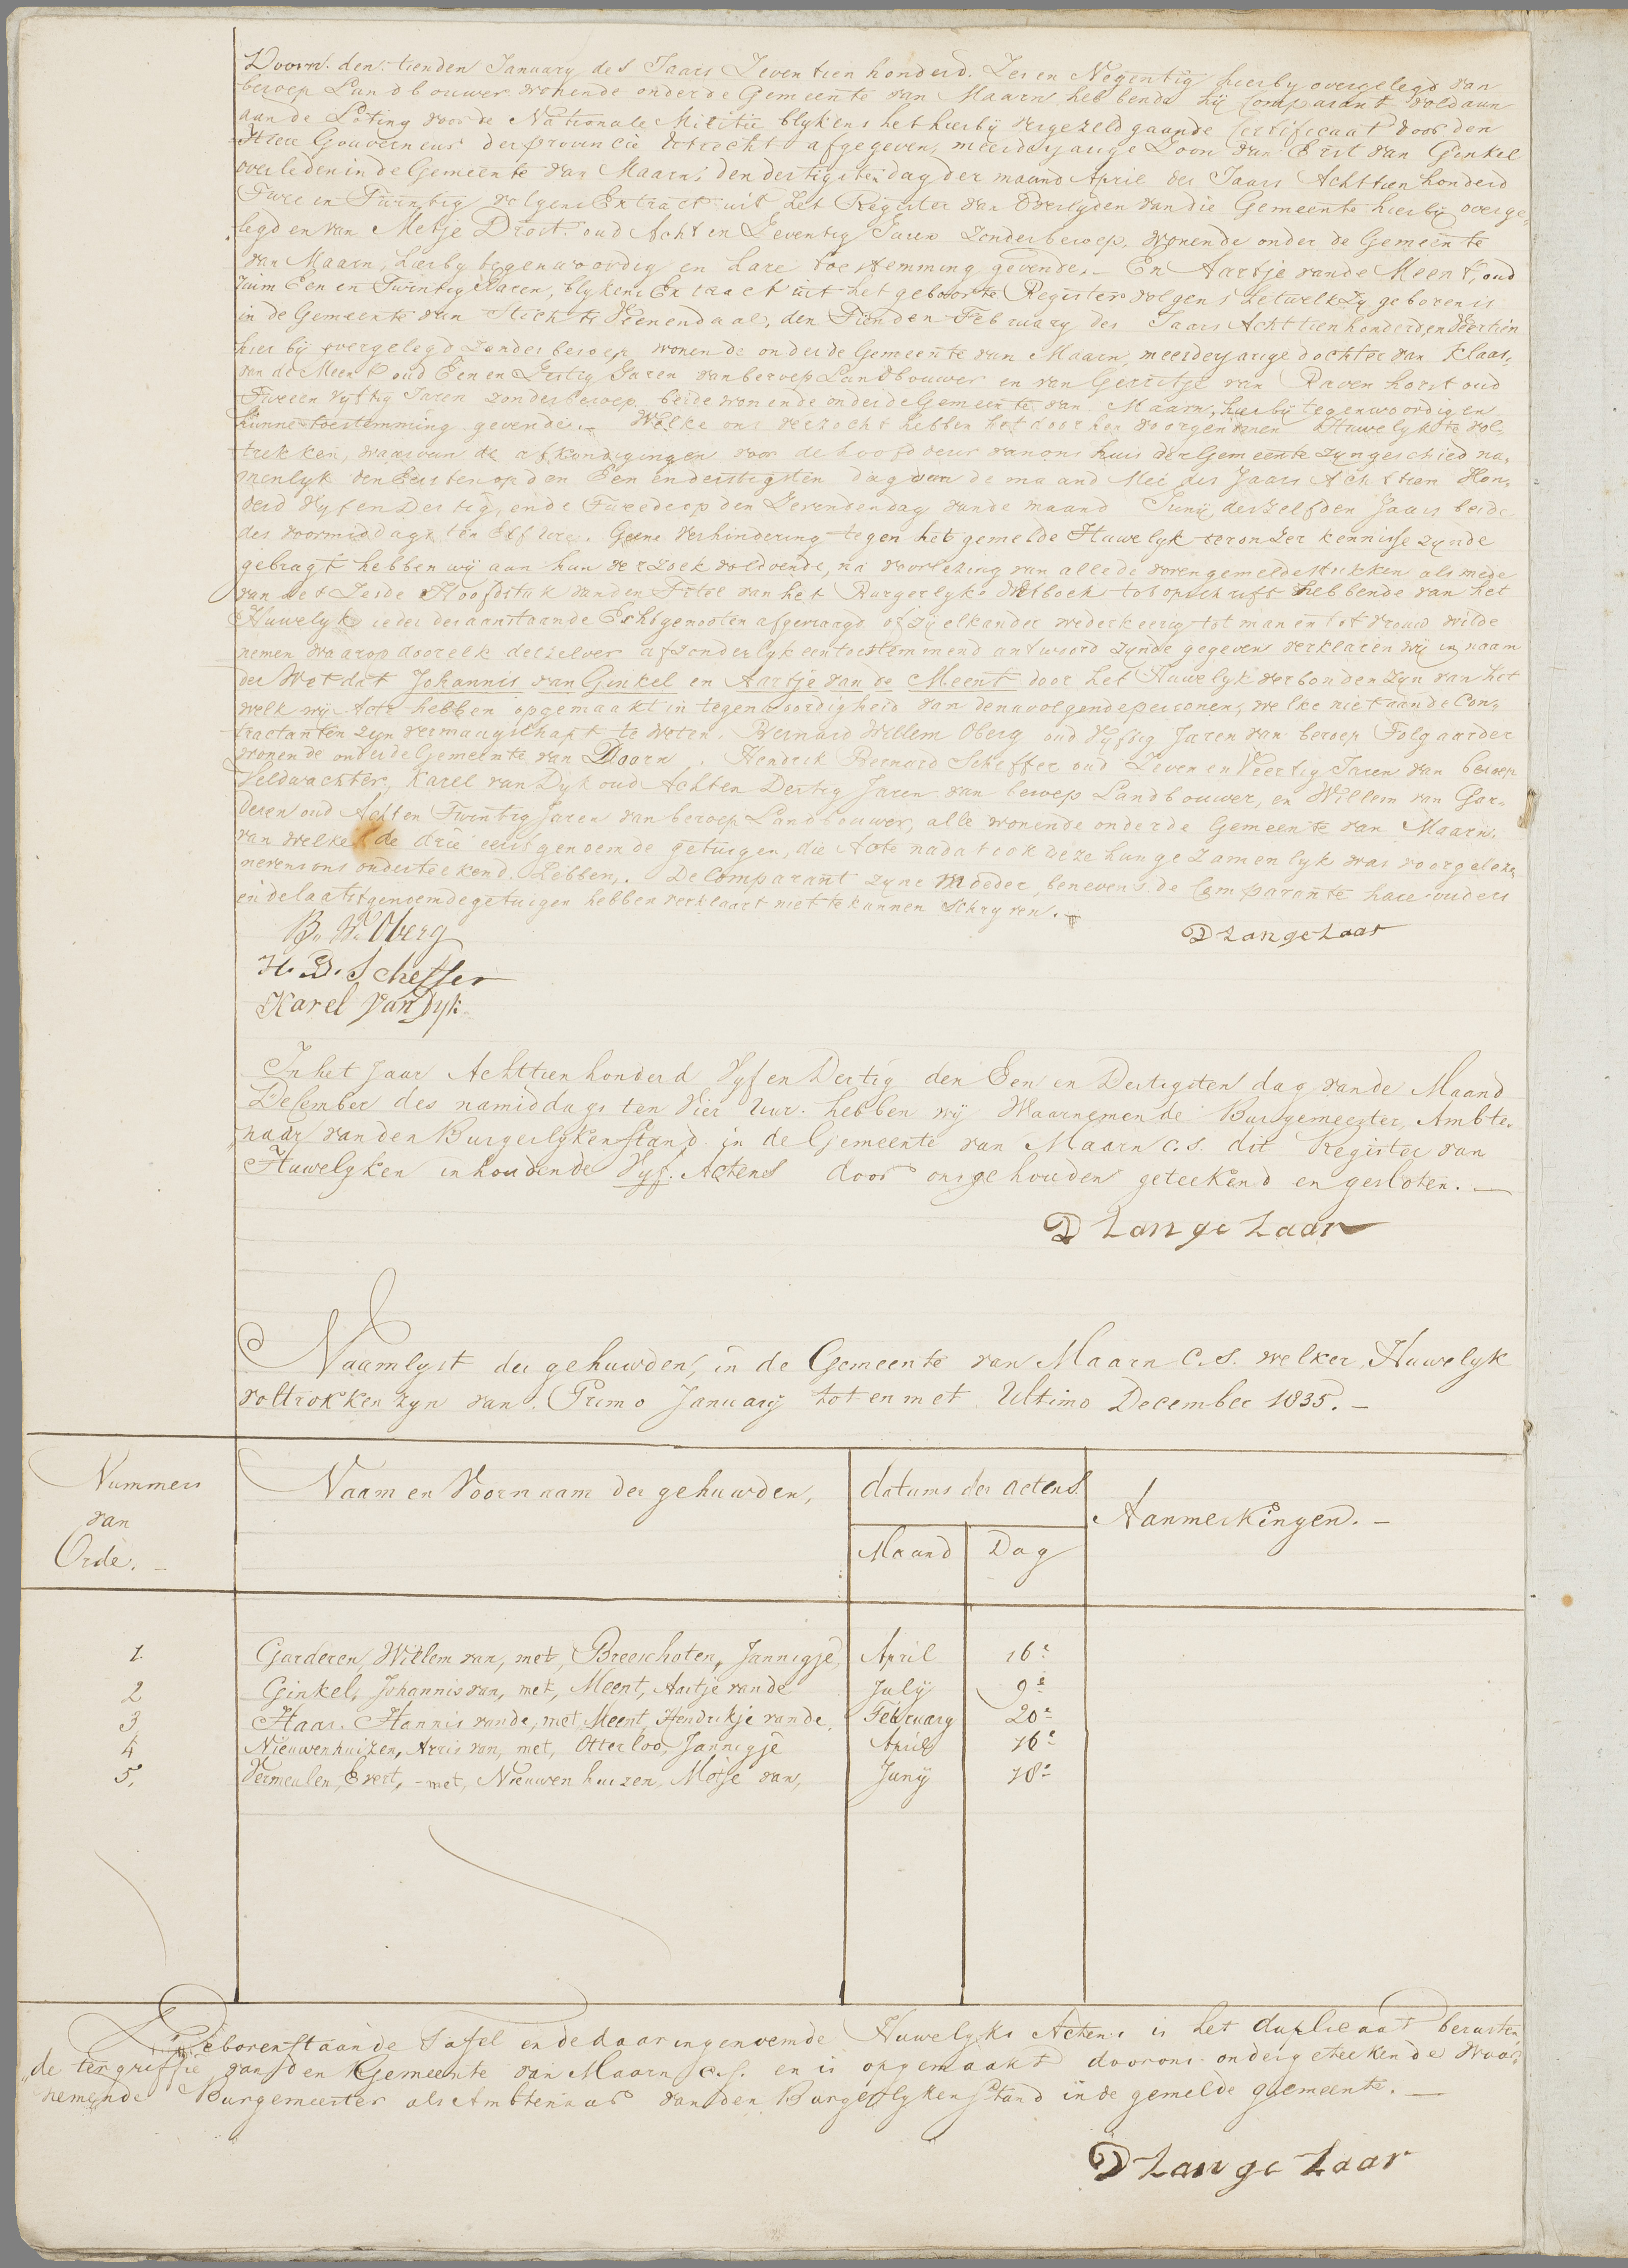 Doorn den tienden January des Jaars Zeventien honderd Zes en Negentig hierby overgelegd van
beroep Landbouwer wonende onder de Gemeente van Maarn hebbende hij Comparant voldaan
aan de Loting voor de Nationale Militie blykens het hierbij vergezeld gaande Certificaat door den
Heer Gouverneur der provincie Utrecht afgegeven, meerderjarige Zoon van Evert van Ginkel
overleden in de Gemeente van Maarn, den dertigsten dag der maand April des Jaars Achttien honderd
Twee en Twintig volgens Extract uit het Register van Overlyden van die Gemeente hierbij overge,
legd en van Metje Drost oud Acht en Zeventig Jaren Zonder beroep, wonende onder de Gemeente
van Maarn, hierby tegenwoordig en hare toestemming gevende. – En Aartje van de Meent, oud
ruim Een en Twintig Jaren, blykens Extract uit het geboorte Register volgens hetwelk Zy geboren is
in de Gemeente van Stichts Veenendaal, den Tienden February des Jaars Achttienhonderd en Veertien
hier bij overgelegd zonder beroep wonende onder de Gemeente van Maarn, meerderjarige dochter van Klaas,
van de Meent oud Een en Zestig Jaren van beroep Landbouwer en van Gerritje van Ravenhorst oud
Twee en vyftig Jaren zonder beroep, beide wonende onder de Gemeente van Maarn, hierbij tegenwoordig en
hunne toestemming gevende. – Welke ons verzocht hebben het door hen voorgenomen Huwelyk te vol-
trekken, waarvan de afkondigingen voor de hoofddeur van ons huis der Gemeente zyn geschied na,
menlyk den Eersten op den Een en dertigsten dag van de maand Mei des Jaars Achttien Hon,
derd Vyf en Dertig, en de Tweede op den Zevenden dag van de maand Junij deszelfden Jaars beide
des voormiddags ten Elf ure. Geene verhindering tegen het gemelde Huwelyk ter onzer kennisse zynde
gebragt hebben wij aan hun verzoek voldoende, na voorlezing van alle de voren gemelde stukken als mede
van het Zesde Hoofdstuk van den Titel van het Burgerlyke Wetboek tot opschrift hebbende van het
Huwelyk ieder der aanstaande Echtgenooten afgevraagd of zij elkander wederkeerig tot man en tot vrouw wilde
nemen waarop door elk derzelver afzonderlyk een toestemmend antwoord zynde gegeven verklaren wij in naam
der Wet dat Johannis van Ginkel en Aartje van de Meent door het Huwelyk verbonden zyn van het
welk wij Acte hebben opgemaakt in tegenwoordigheid van de navolgende personen, welke niet aan de Con,
tractanten zyn vermaagschapt te weten. Bernard Willem Oberg oud Vyftig Jaren van beroep Tolgaarder
wonende onder de Gemeente van Doorn, Hendrik Bernard Scheffer oud Zeven en Veertig Jaren van beroep
Veldwachter, Karel van Dyk oud Acht en Dertig Jaren van beroep Landbouwer, en Willem van Gar-
deren oud Acht en Twintig Jaren van beroep Landbouwer, alle wonende onder de Gemeente van Maarn.
van welke de drie eerstgenoemde getuigen, die Acte nadat ook deze hun gezamenlyk was voorgelezen
nevens ons onderteekend hebben,. De Comparant zyne Moeder, benevens de Comparante hare ouders
en de laatstgenoemde getuigen hebben verklaart niet te kunnen Schryven. –
B. W. Oberg
D Langelaar
H. B. Scheffer
Karel van Dyk
In het Jaar Achttien honderd Vyf en Dertig den Een en Dertigsten dag van de Maand
December des namiddags ten Vier Uur. hebben wij Waarnemende Burgemeester, Ambte,
naar van den Burgerlyken Stand in de Gemeente van Maarn c.s. dit Register van
Huwelyken inhoudende Vyf. Actens door ons gehouden geteekend en gesloten. –
D Langelaar
Naamlyst der gehuwden, in de Gemeente van Maarn C.S. welker Huwelyk
voltrokken zyn van Primo January tot en met Ultimo December 1835. –
Nummers
van
Orde. –
Naam en Voornaam der gehuwden,
datums der actens
Maand Dag
Aanmerkingen. –
1. Garderen, Willem van, met, Breeschoten, Jannigje, April 16e
2 Ginkel, Johannis van, met, Meent, Aartje van de July 9e
3 Haar. Hannis van de, met, Meent, Hendrikje van de, February 20e
4 Nieuwenhuizen, Arris van, met, Otterloo, Jannigje April 16e
5. Vermeulen, Evert, – met, Nieuwenhuizen, Metje van, Junij 18e
Bovenstaande Tafel en de daar ingenoemde Huwelyks Actens is het duplicaat berusten
„de ter griffie van den Gemeente van Maarn c.s. en is opgemaakt door ons ondergeteekende Waar
nemende Burgemeester als Ambtenaar van den Burgerlyken Stand in de gemelde gemeente. –
D Langelaar